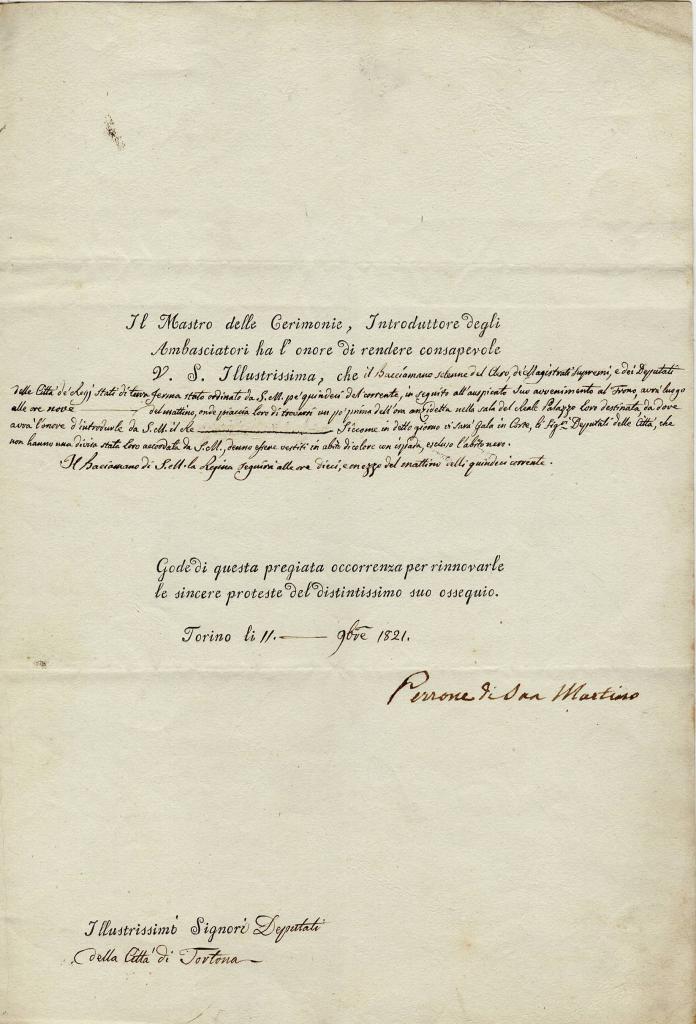 Il Mastro delle Cerimonie, Introduttore degli
Ambasciatori ha l'onore di rendere consapevole
V. S. Illustrissima, che il Bacciamano solenne del Clero, di Magistrati Supremi, e dei Deputati
delle Città de' Regj Stati di terra ferma stato ordinato da S.M. pe' quindeci del corrente, in seguito all'auspicato Suo avvenimento al Trono, avrà luogo
alle ore nove del mattino, onde piaccia loro di trovarsi un po' prima dell'ora anzidetta nella sala del Reale Palazzo loro destinata, da dove
avrà l'onore d'introdurle da S.M. il Re Siccome in detto giorno vi sarà Gala in Corte, li Sigri Deputati delle Città, che
non hanno una divisa stata loro accordata da S.M., deuno essere vestiti in abito di colore con ispada, escluso l'abito nero.
Il Baciamano di S.M. la Regina seguirà alle ore dieci, e mezzo del mattino delli quindeci corrente.
Gode di questa pregiata occorrenza per rinnovarle
le sincere proteste del distintissimo suo ossequio.
Torino li 11. 9bre 1821.
Perrone di San Martino
Illustrissimi Signori Deputati
della Città di Tortona